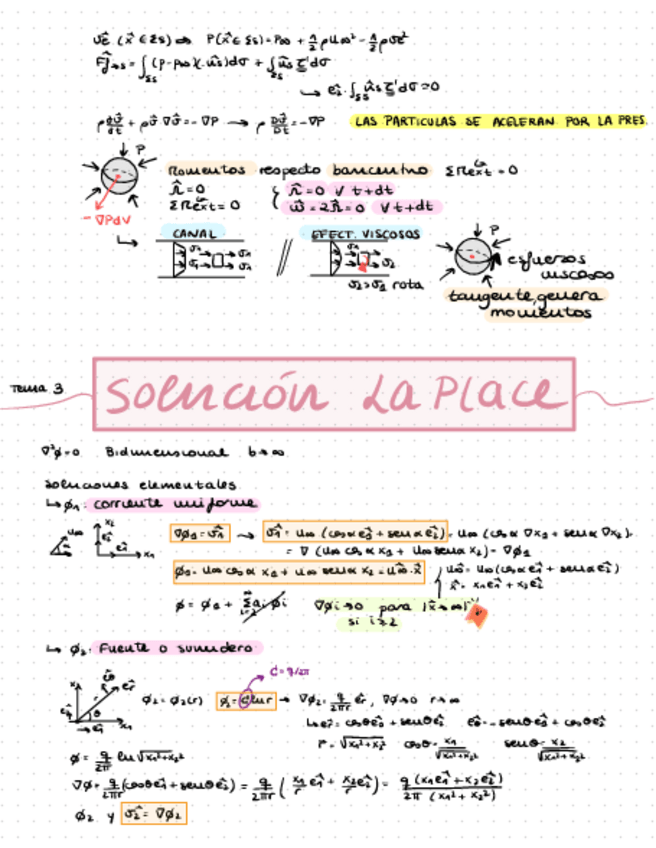 v⃗e (x⃗ ∈ Σs) ⇒ P(x⃗ ∈ Σs) = P∞ + 1/2 ρ u∞² - 1/2 ρ ve²
= ∫Σs (p - p∞)(-n⃗s)dσ + ∫Σs n⃗s τ' dσ
→ ∫Σs n⃗s τ' dσ ≈ 0
ρ ∂v⃗/∂t + ρ v⃗ ∇v⃗ = -∇P → ρ Dv⃗/Dt = -∇P LAS PARTICULAS SE ACELERAN POR LA PRES.
P
Momentos respecto baricentro
-∇P dV
CANAL // EFECT. VISCOSOS
P
esfuerzos viscosos
rota
tangente, genera momentos
Tema 3
Solución La Place
∇²φ=0 Bidimensional b→∞
soluciones elementales
↳ φ1: corriente uniforme
∇φ1 = v⃗1 → v⃗1 = u∞ (cosα e⃗1 + senα e⃗2) = u∞ (cosα ∇x1 + senα ∇x2)
= ∇ (u∞ cosα x1 + u∞ senα x2) = ∇φ1
φ1 = u∞ cosα x1 + u∞ senα x2 = u⃗∞ · x⃗
u⃗∞ = u∞ (cosα e⃗1 + senα e⃗2)
x⃗ = x1 e⃗1 + x2 e⃗2
φ = φ1 + Σ ai φi ∇φi → 0 para |x⃗→∞|
si i≥2
↳ φ2: Fuente o sumidero
C = q/2π
φ2 = φ2(r) φ2 = C ln r → ∇φ2 = q/2πr e⃗r, ∇φ→0 r→∞
↳ e⃗r = cosθ e⃗1 + senθ e⃗2 e⃗θ = -senθ e⃗1 + cosθ e⃗2
r = √(x1²+x2²) cosθ = x1/√(x1²+x2²) senθ = x2/√(x1²+x2²)
φ = q/2π ln √(x1²+x2²)
∇φ = q/2πr (cosθ e⃗1 + senθ e⃗2) = q/2πr (x1/r e⃗1 + x2/r e⃗2) = q (x1 e⃗1 + x2 e⃗2)/2π (x1² + x2²)
φ2 y v⃗2 = ∇φ2